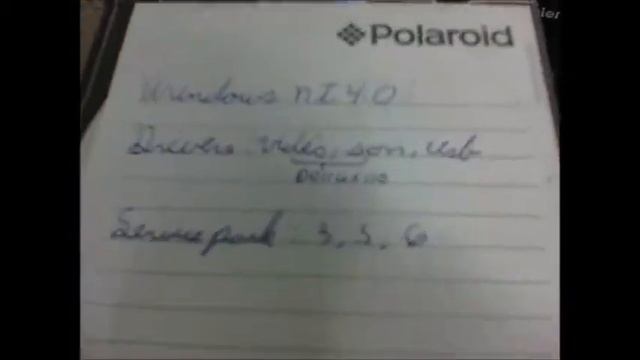 ier
Polaroid
Windows NT 4.0
Drivers video, son, usb
Service pack : 3, 5, 6